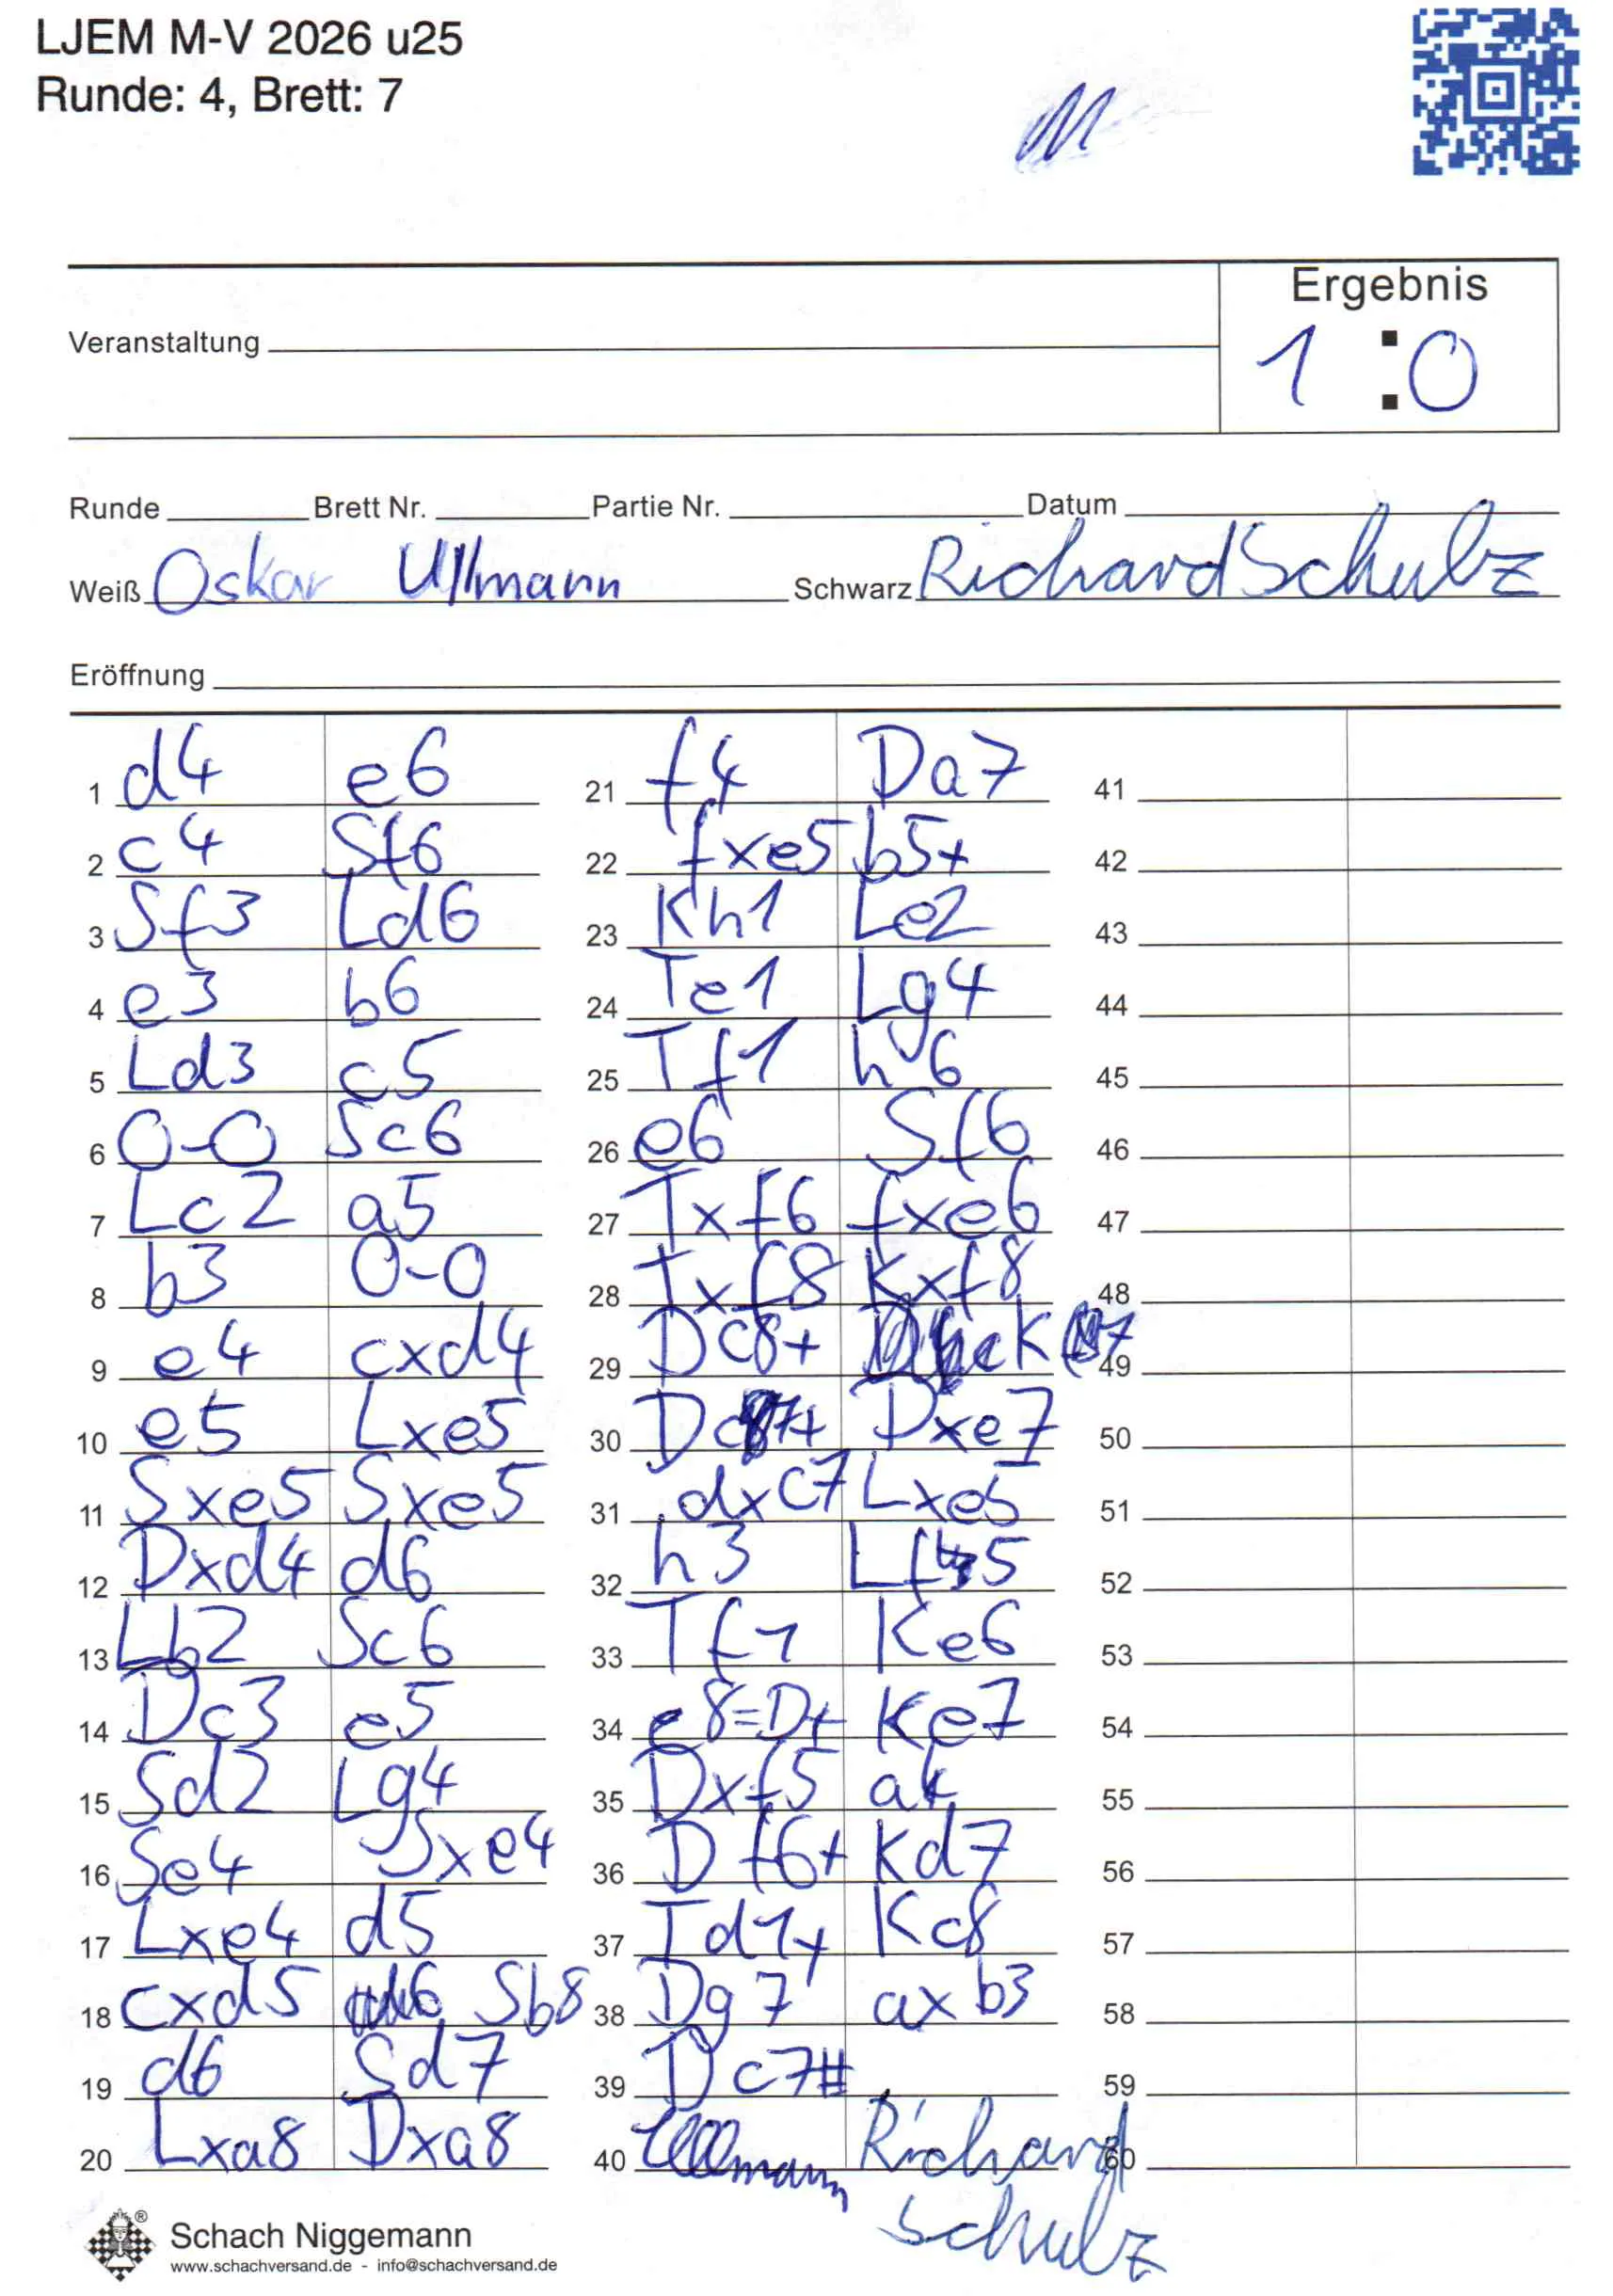 LJEM M-V 2026 u25
Runde: 4, Brett: 7
Ergebnis
Veranstaltung
1 : 0
Runde Brett Nr. Partie Nr. Datum
Weiß Oskar Ullmann Schwarz Richard Schulz
Eröffnung
1 d4 e6 21 f4 Da7 41
2 c4 Sf6 22 fxe5 b5+ 42
3 Sf3 Ld6 23 Kh1 Le2 43
4 e3 b6 24 Te1 Lg4 44
5 Ld3 c5 25 Tf1 h6 45
6 0-0 Sc6 26 e6 Sf6 46
7 Lc2 a5 27 Txf6 fxe6 47
8 b3 0-0 28 Txf8 Kxf8 48
9 e4 cxd4 29 Dc8+ K 7 49
10 e5 Lxe5 30 Dc7+ Dxe7 50
11 Sxe5 Sxe5 31 dxc7 Lxe5 51
12 Dxd4 d6 32 h3 Lf5 52
13 Lb2 Sc6 33 Tf1 Ke6 53
14 Dc3 e5 34 e8=D+ Ke7 54
15 Sd2 Lg4 35 Dxf5 a4 55
16 Se4 Sxe4 36 Df6+ Kd7 56
17 Lxe4 d5 37 Td1+ Kc8 57
18 cxd5 Sb8 38 Dg7 axb3 58
19 d6 Sd7 39 Dc7# 59
20 Lxa8 Dxa8 40 Ullmann Richard 60
Schulz
®
Schach Niggemann
www.schachversand.de - info@schachversand.de